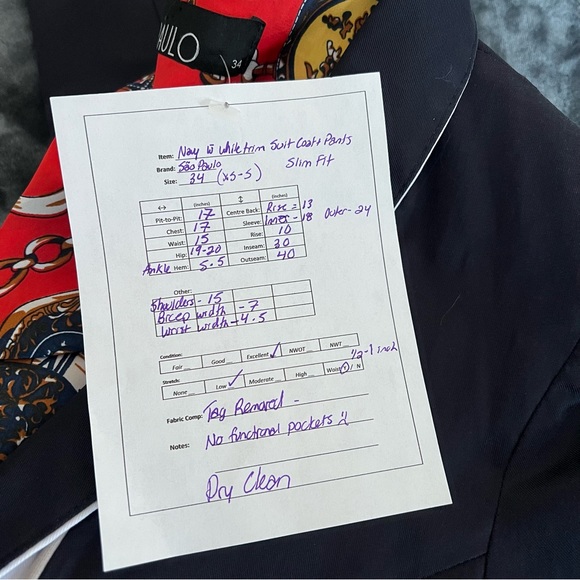 AULO
34
Item: Navy w white trim Suit Coat + Pants
Brand: São Paulo Slim Fit
Size: 34 (XS-S)
↔ (inches) ↕ (inches)
Pit-to-Pit: 17 Centre Back: Rise = 13
Chest: 17 Sleeve: Inner - 18 Outer - 24
Waist: 15 Rise: 10
Hip: 19-20 Inseam: 30
Ankle Hem: 5.5 Outseam: 40
Other:
Shoulders - 15
Bicep width - 7
Wrist width - 4.5
Condition:
Fair __ Good __ Excellent ✓ NWOT __ NWT __
Stretch: 1/2-1 inch
None __ Low ✓ Moderate __ High __ Waist Y / N
Fabric Comp: Tag Removed -
Notes: No functional pockets :(
Dry Clean